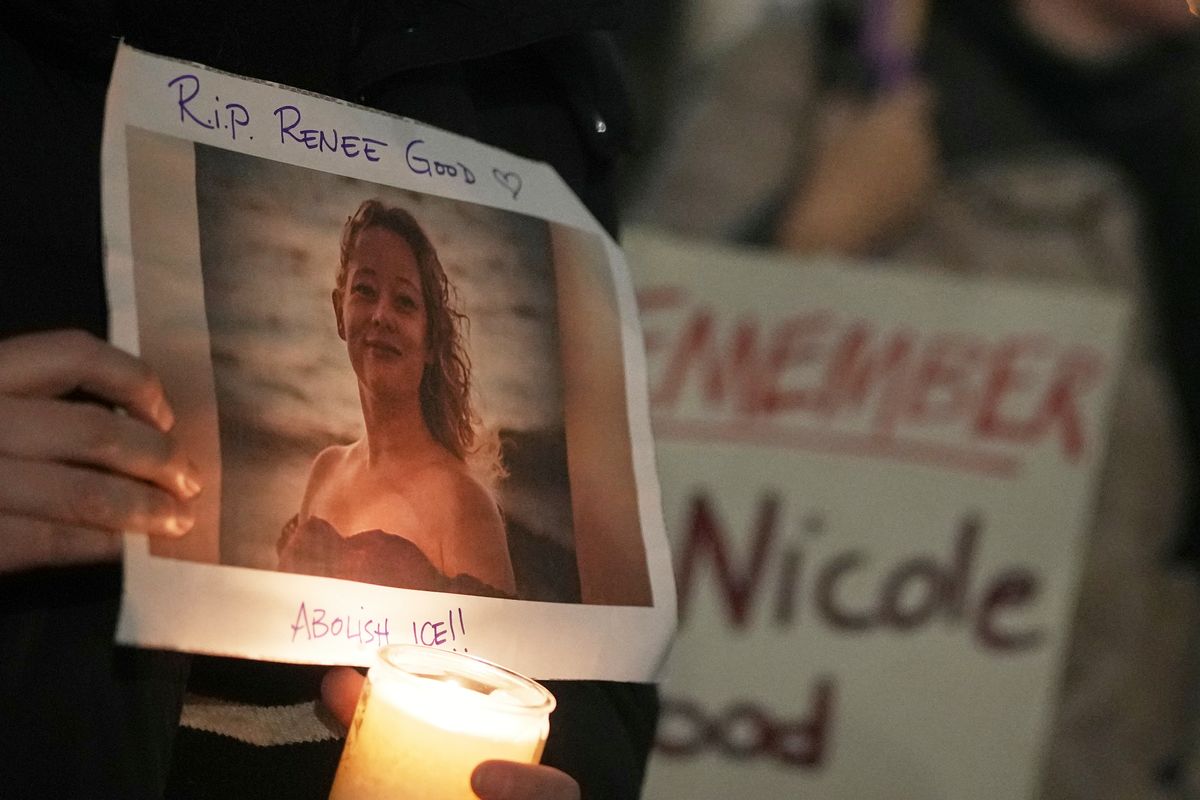 R.i.P. RENEE GOOD ♡
ABOLISH ICE!!
EMEMBER
Nicole
ood